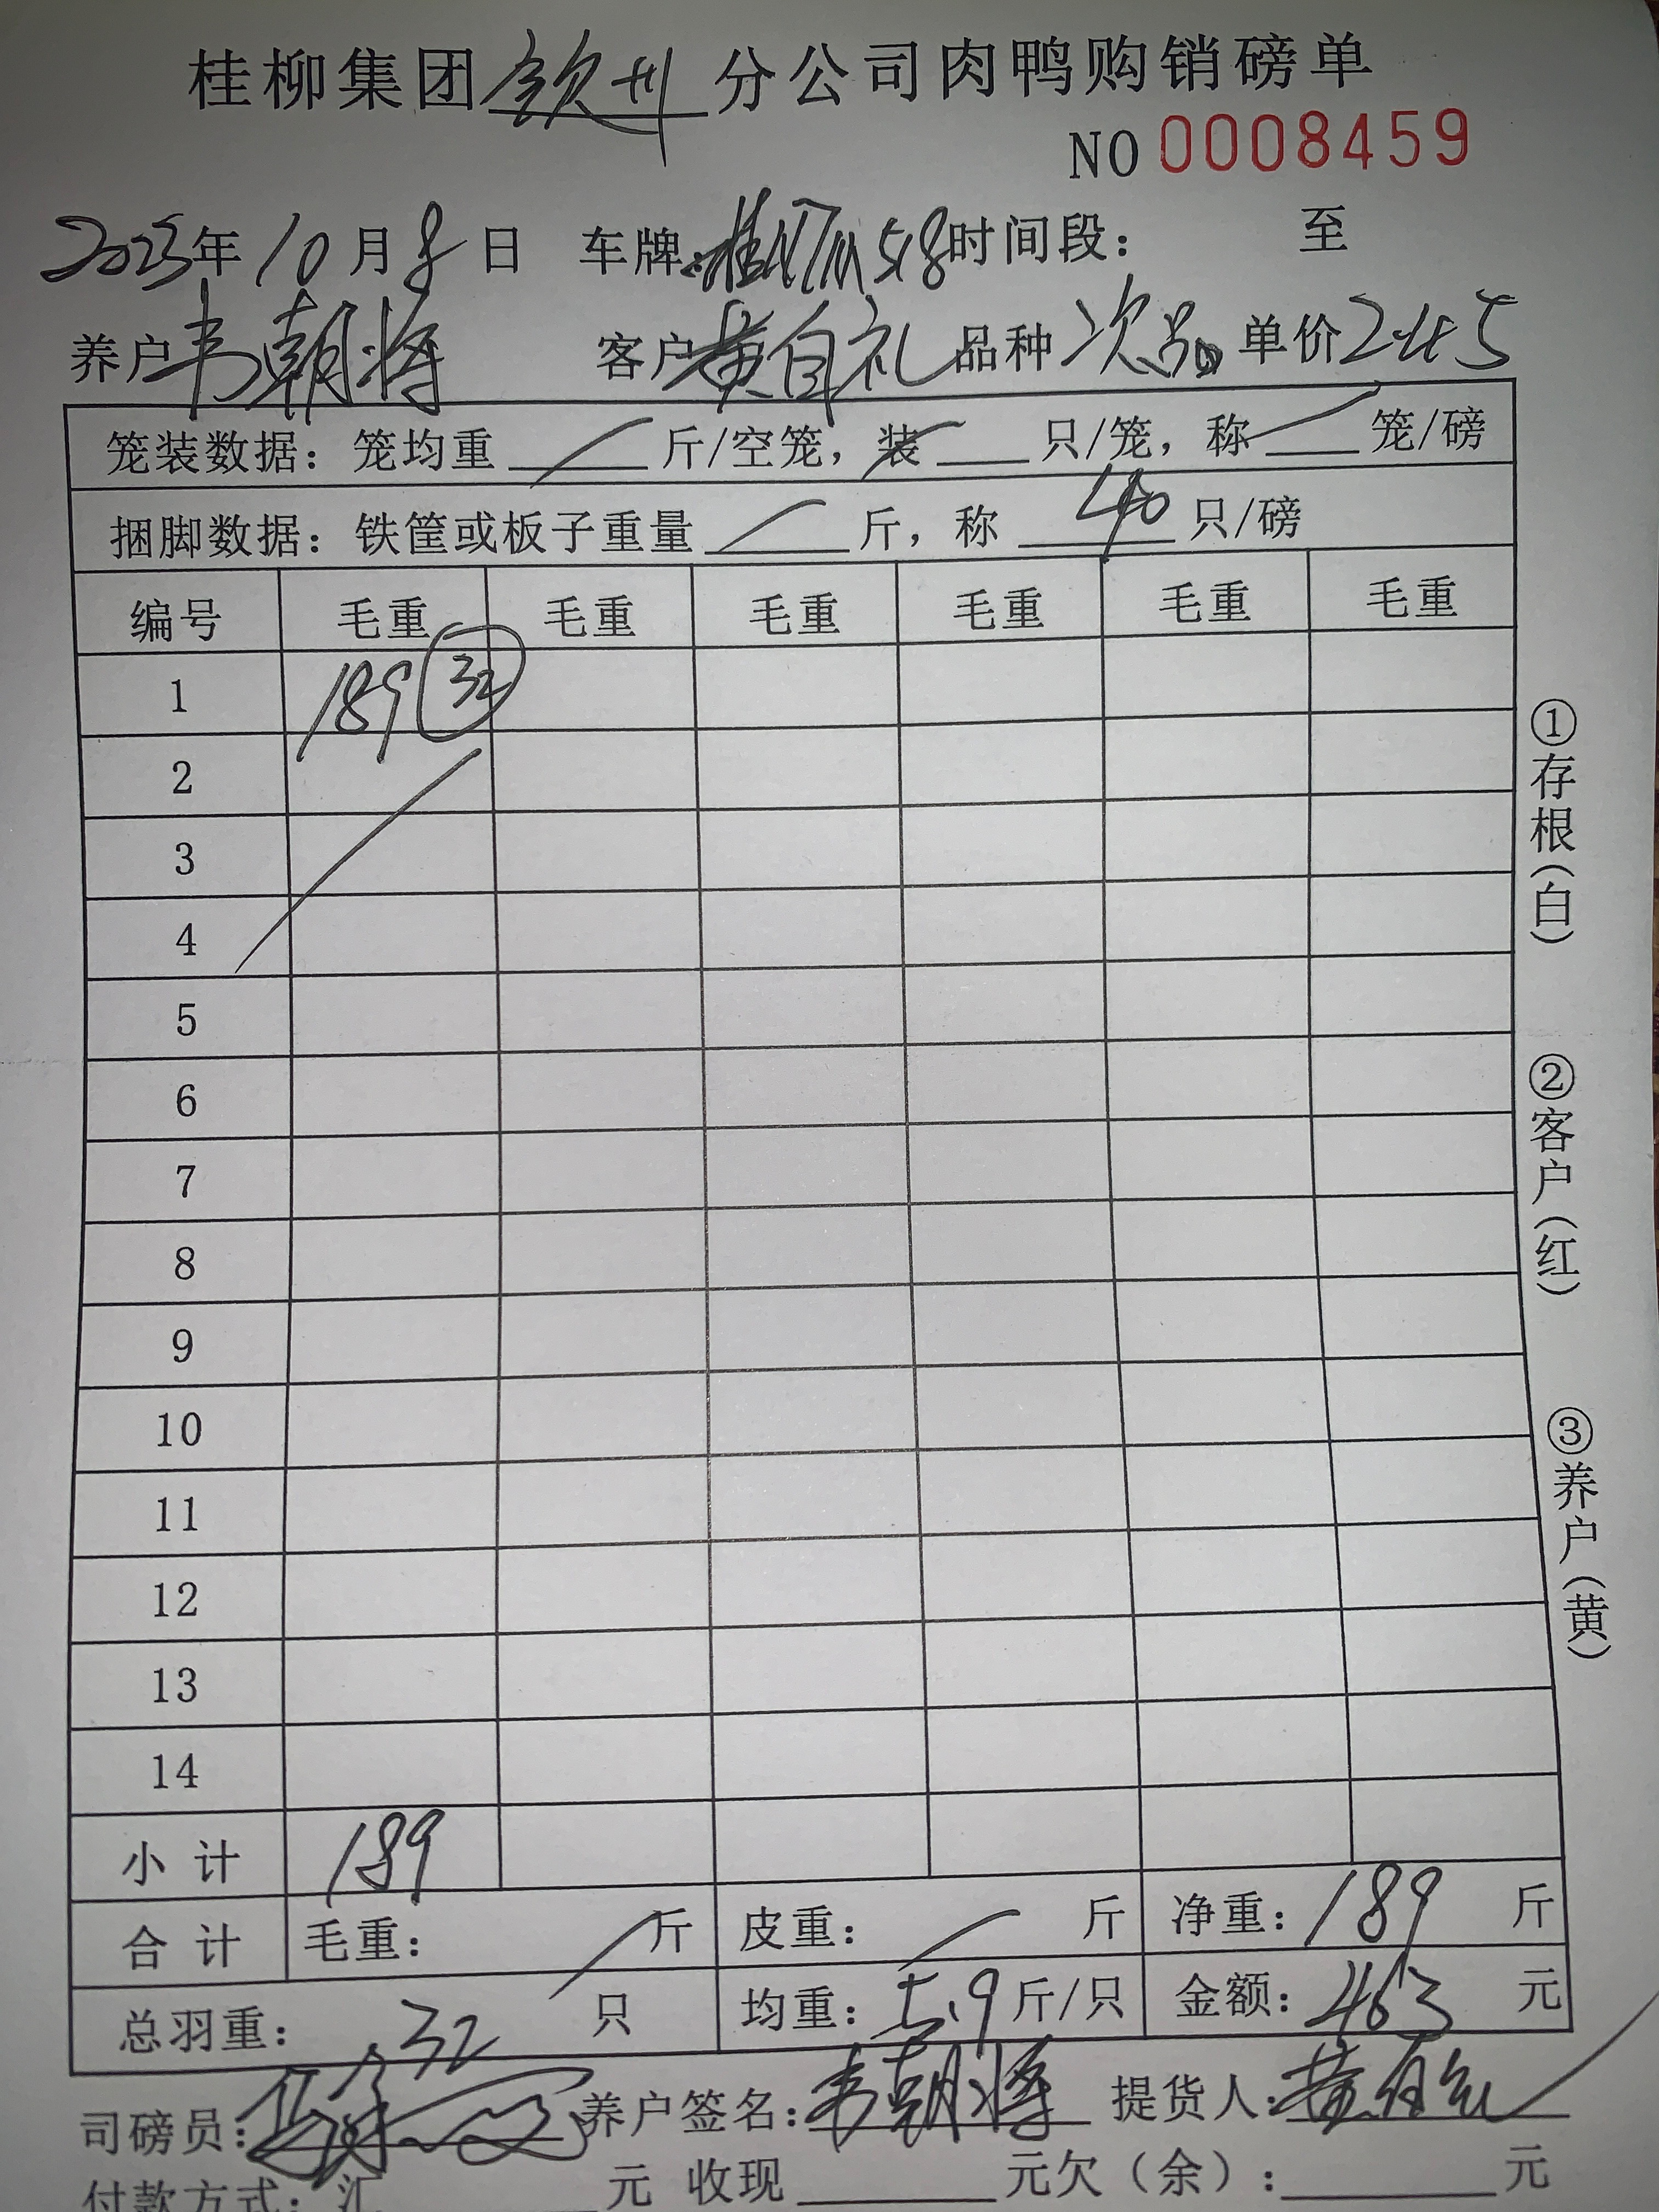 桂柳集团钦州分公司肉鸭购销磅单
NO 0008459
2023年10月8日 车牌: 桂 518 时间段: 至
养户 韦朝将 客户 黄自礼 品种 次品 单价 2.45
笼装数据: 笼均重 斤/空笼, 装 只/笼, 称 笼/磅
捆脚数据: 铁筐或板子重量 斤, 称 40 只/磅
编号 毛重 毛重 毛重 毛重 毛重 毛重
1 189 32
2
3
4
5
6
7
8
9
10
11
12
13
14
小计 189
合计 毛重: 斤 皮重: 斤 净重: 189 斤
总羽重: 32 只 均重: 5.9 斤/只 金额: 463 元
司磅员: 养户签名: 韦朝将 提货人: 黄自礼
付款方式: 汇 元 收现 元欠(余): 元
①存根(白)
②客户(红)
③养户(黄)